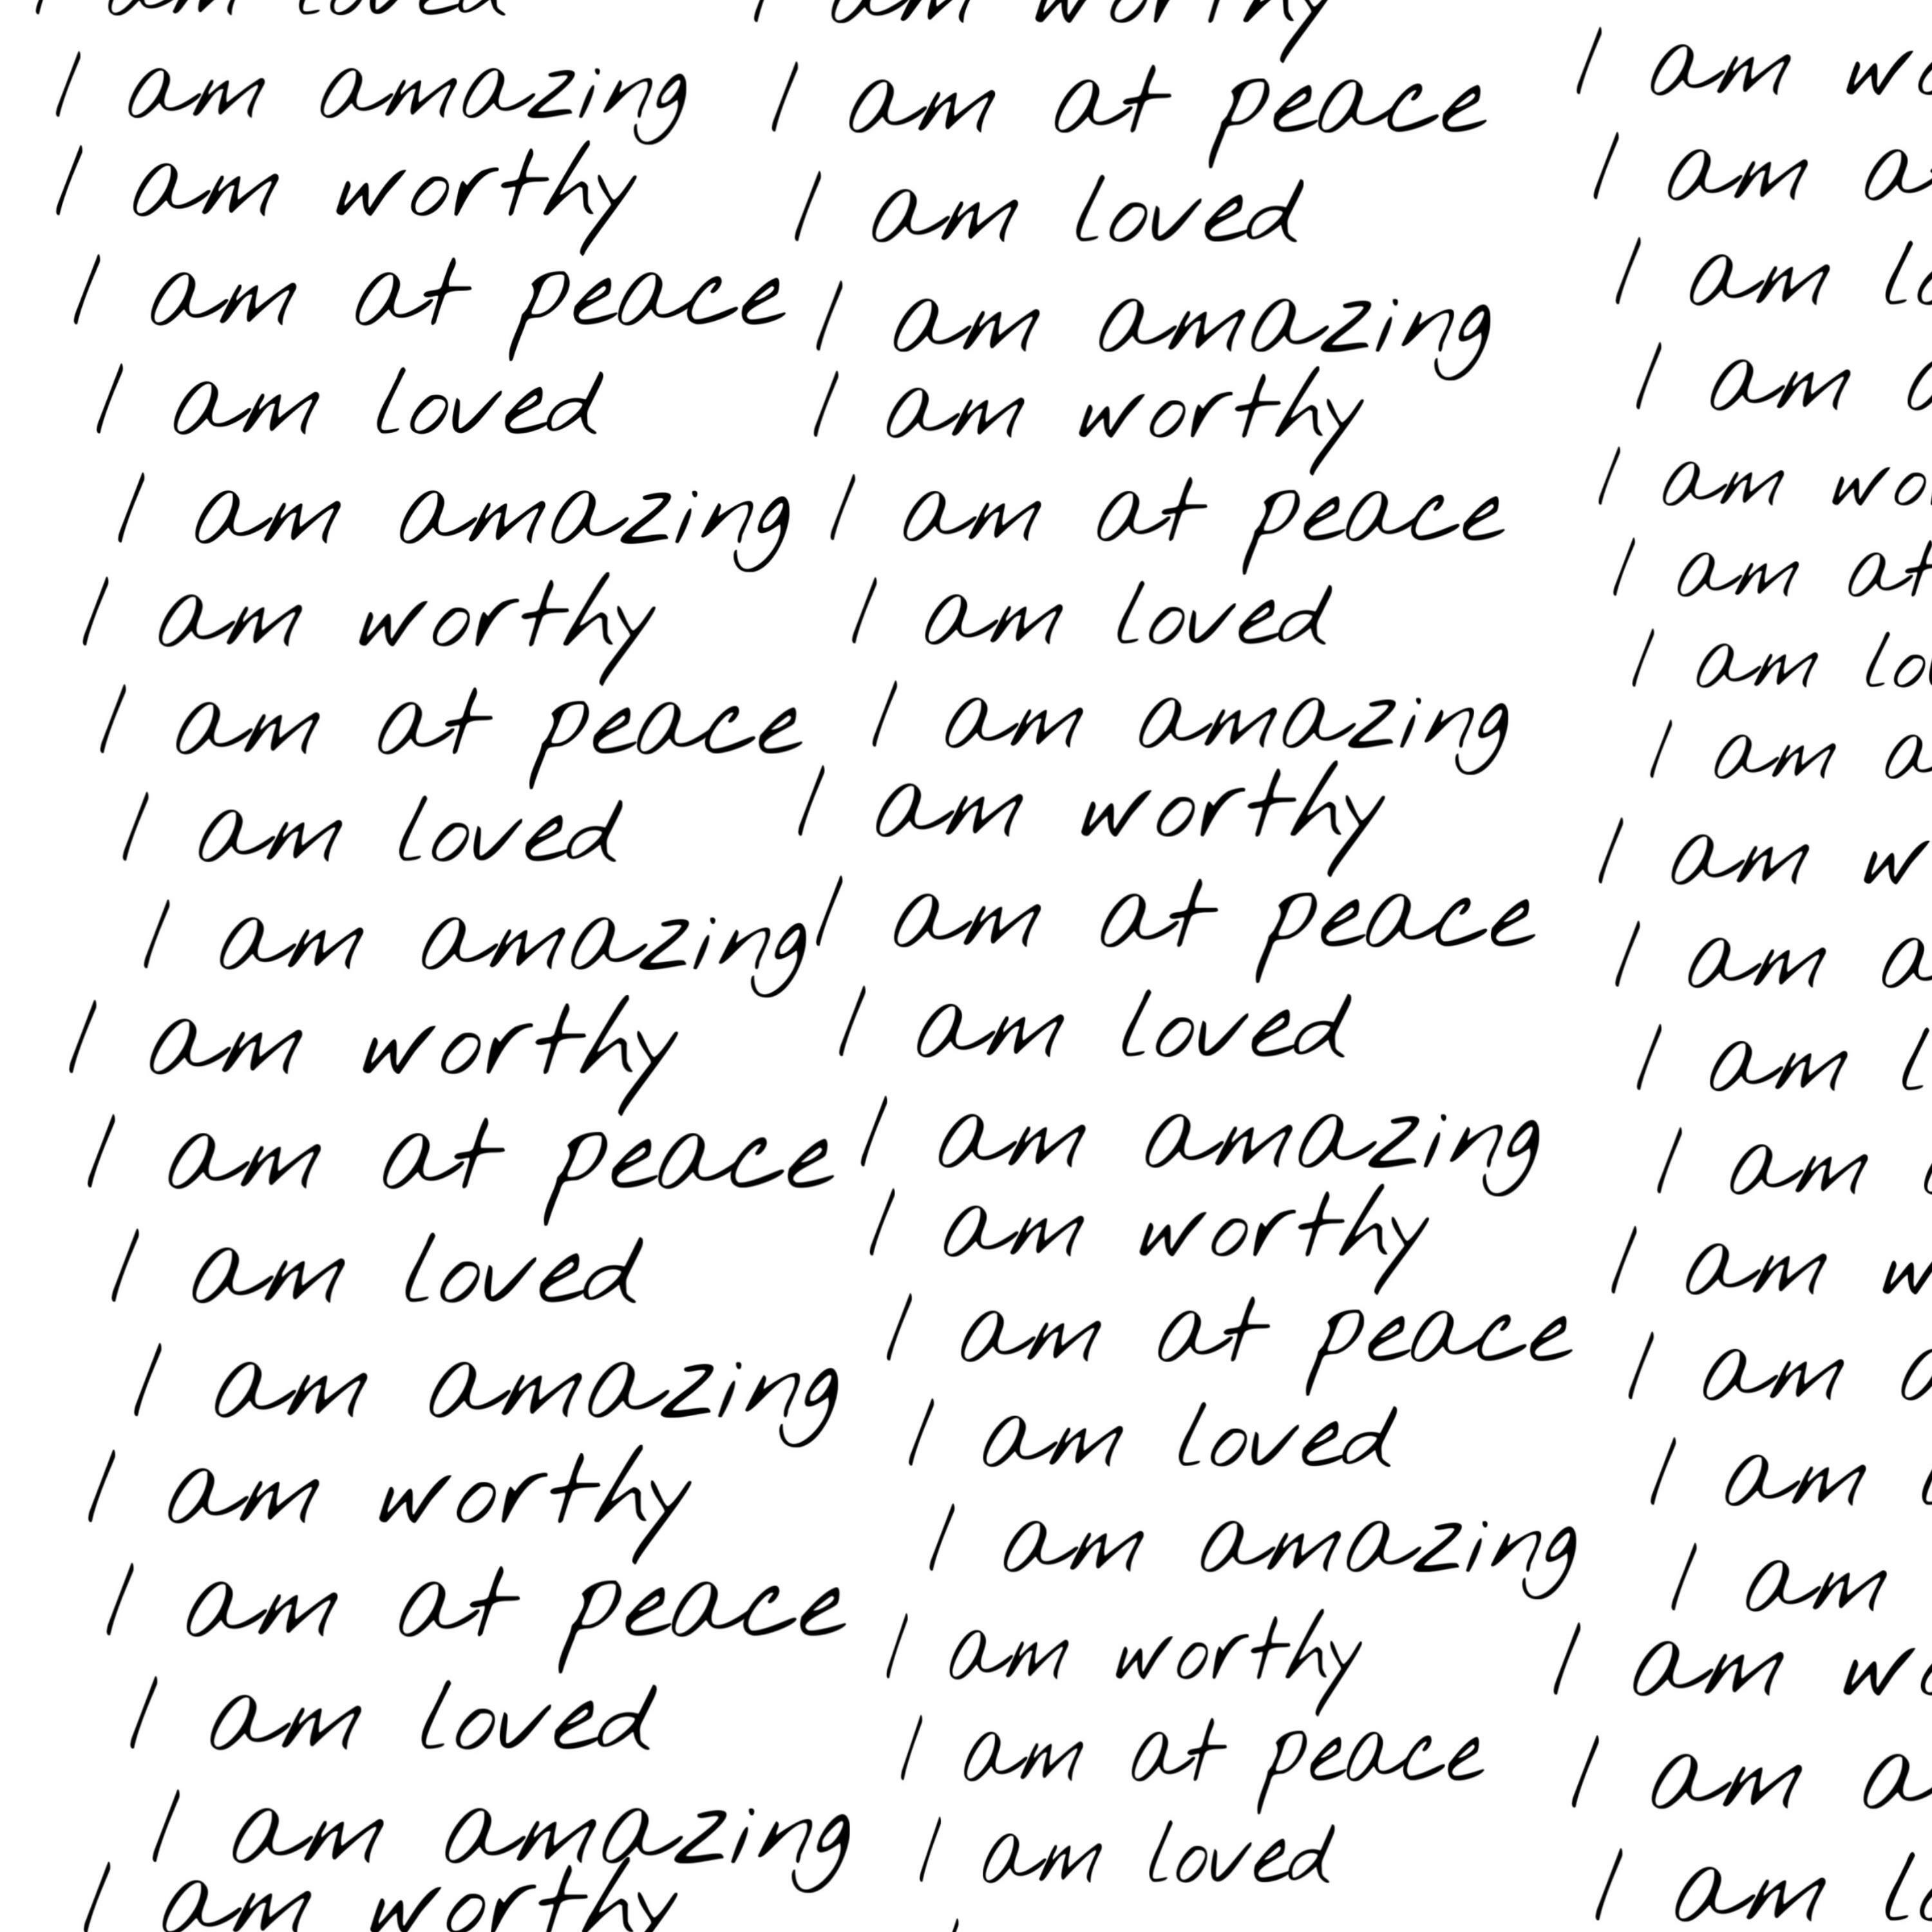 I am loved
I am amazing
I am worthy
I am at peace
I am loved
I am amazing
I am worthy
I am at peace
I am loved
I am amazing
I am worthy
I am at peace
I am loved
I am amazing
I am worthy
I am at peace
I am loved
I am amazing
I am worthy
I am worthy
I am at peace
I am loved
I am amazing
I am worthy
I am at peace
I am loved
I am amazing
I am worthy
I am at peace
I am loved
I am amazing
I am worthy
I am at peace
I am loved
I am amazing
I am worthy
I am at peace
I am loved
I am
I am
I am
I am
I am
I am at
I am
I am
I am
I am
I am
I am
I am
I am
I am
I am
I am
I am
I am